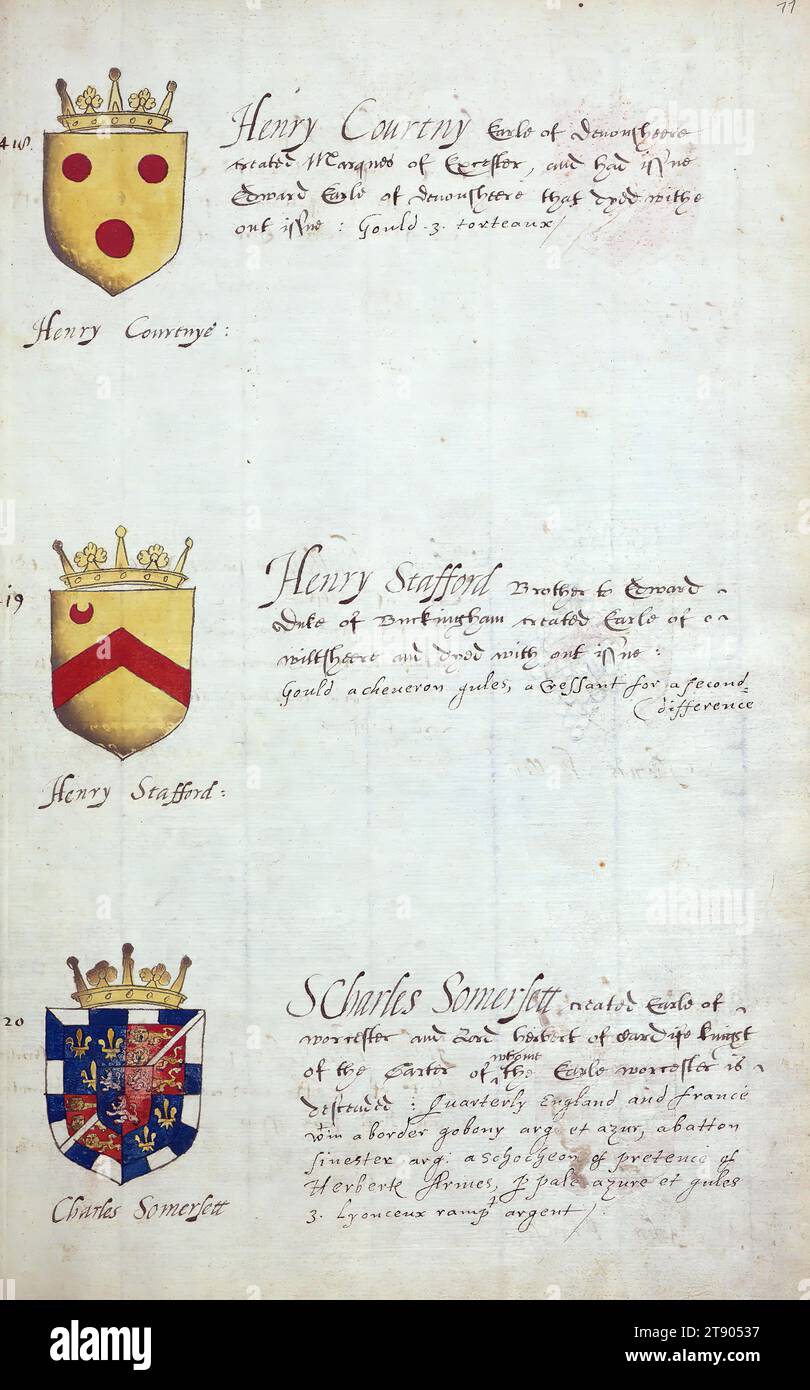 77
418.
Henry Courtny Earle of devonsheere
created Marques of Excester, and had issue
Edward Earle of devonsheere that dyed withe
out issue : Gould .3. torteaux /
Henry Courtnye :
19
Henry Stafford Brother to Edward
Duke of Buckingham created Earle of
wiltsheere and dyed with out issue :
Gould a cheveron gules, a Cressant for a second
difference
Henry Stafford :
20
SCharles Somersett created Earle of
worcester and Lord herbert of Cardife knight
of the Garter of whome the Earle worcester is
descended : Quarterly England and France
wtin a border gobony arg et azur, a batton
sinester arg: a schocheon of pretence of
Herberte Armes, p pale azure et gules
3. Lyonceux rampt argent /
Charles Somersett
alamy
alamy
alamy
Image ID: 2T90537
www.alamy.com